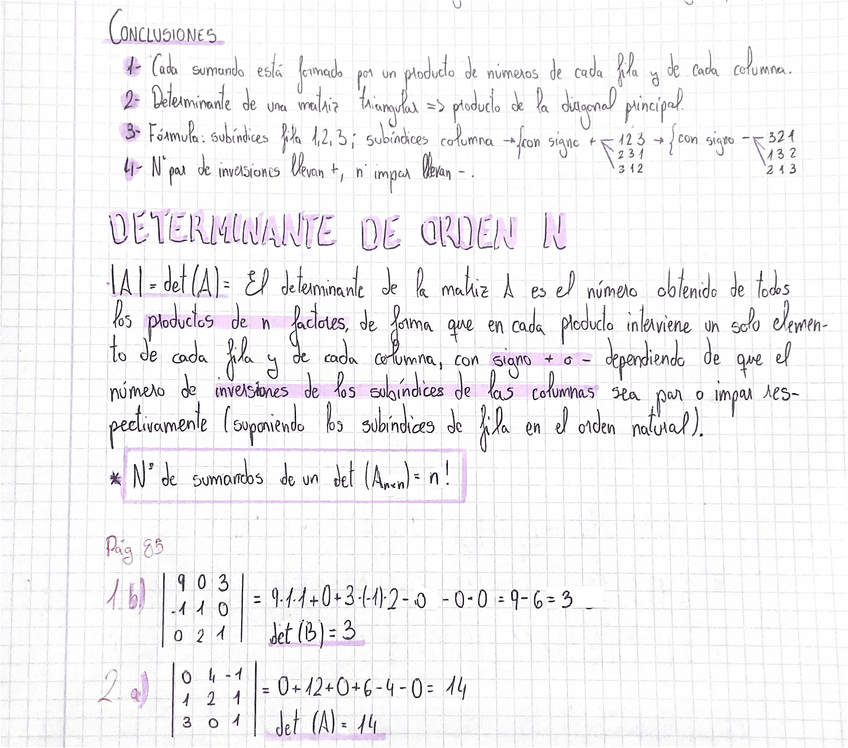 CONCLUSIONES
1- Cada sumando está formado por un producto de números de cada fila y de cada columna.
2- Determinante de una matriz triangular => producto de la diagonal principal.
3- Fórmula: subíndices fila 1,2,3; subíndices columna → {con signo + 123 → {con signo - 321
231 132
312 213
4- Nº par de inversiones llevan +, nº impar llevan -.
DETERMINANTE DE ORDEN N
|A| = det(A) = El determinante de la matriz A es el número obtenido de todos
los productos de n factores, de forma que en cada producto interviene un solo elemen-
to de cada fila y de cada columna, con signo + o - dependiendo de que el
número de inversiones de los subíndices de las columnas sea par o impar res-
pectivamente (suponiendo los subíndices de fila en el orden natural).
* Nº de sumandos de un det (Anxn) = n!
Pág 85
1.b) |9 0 3| = 9·1·1+0+3·(-1)·2-0 -0-0 = 9-6 = 3
|-1 1 0|
|0 2 1| det(B) = 3
2.a) |0 4 -1| = 0+12+0+6-4-0 = 14
|1 2 1|
|3 0 1| det (A) = 14